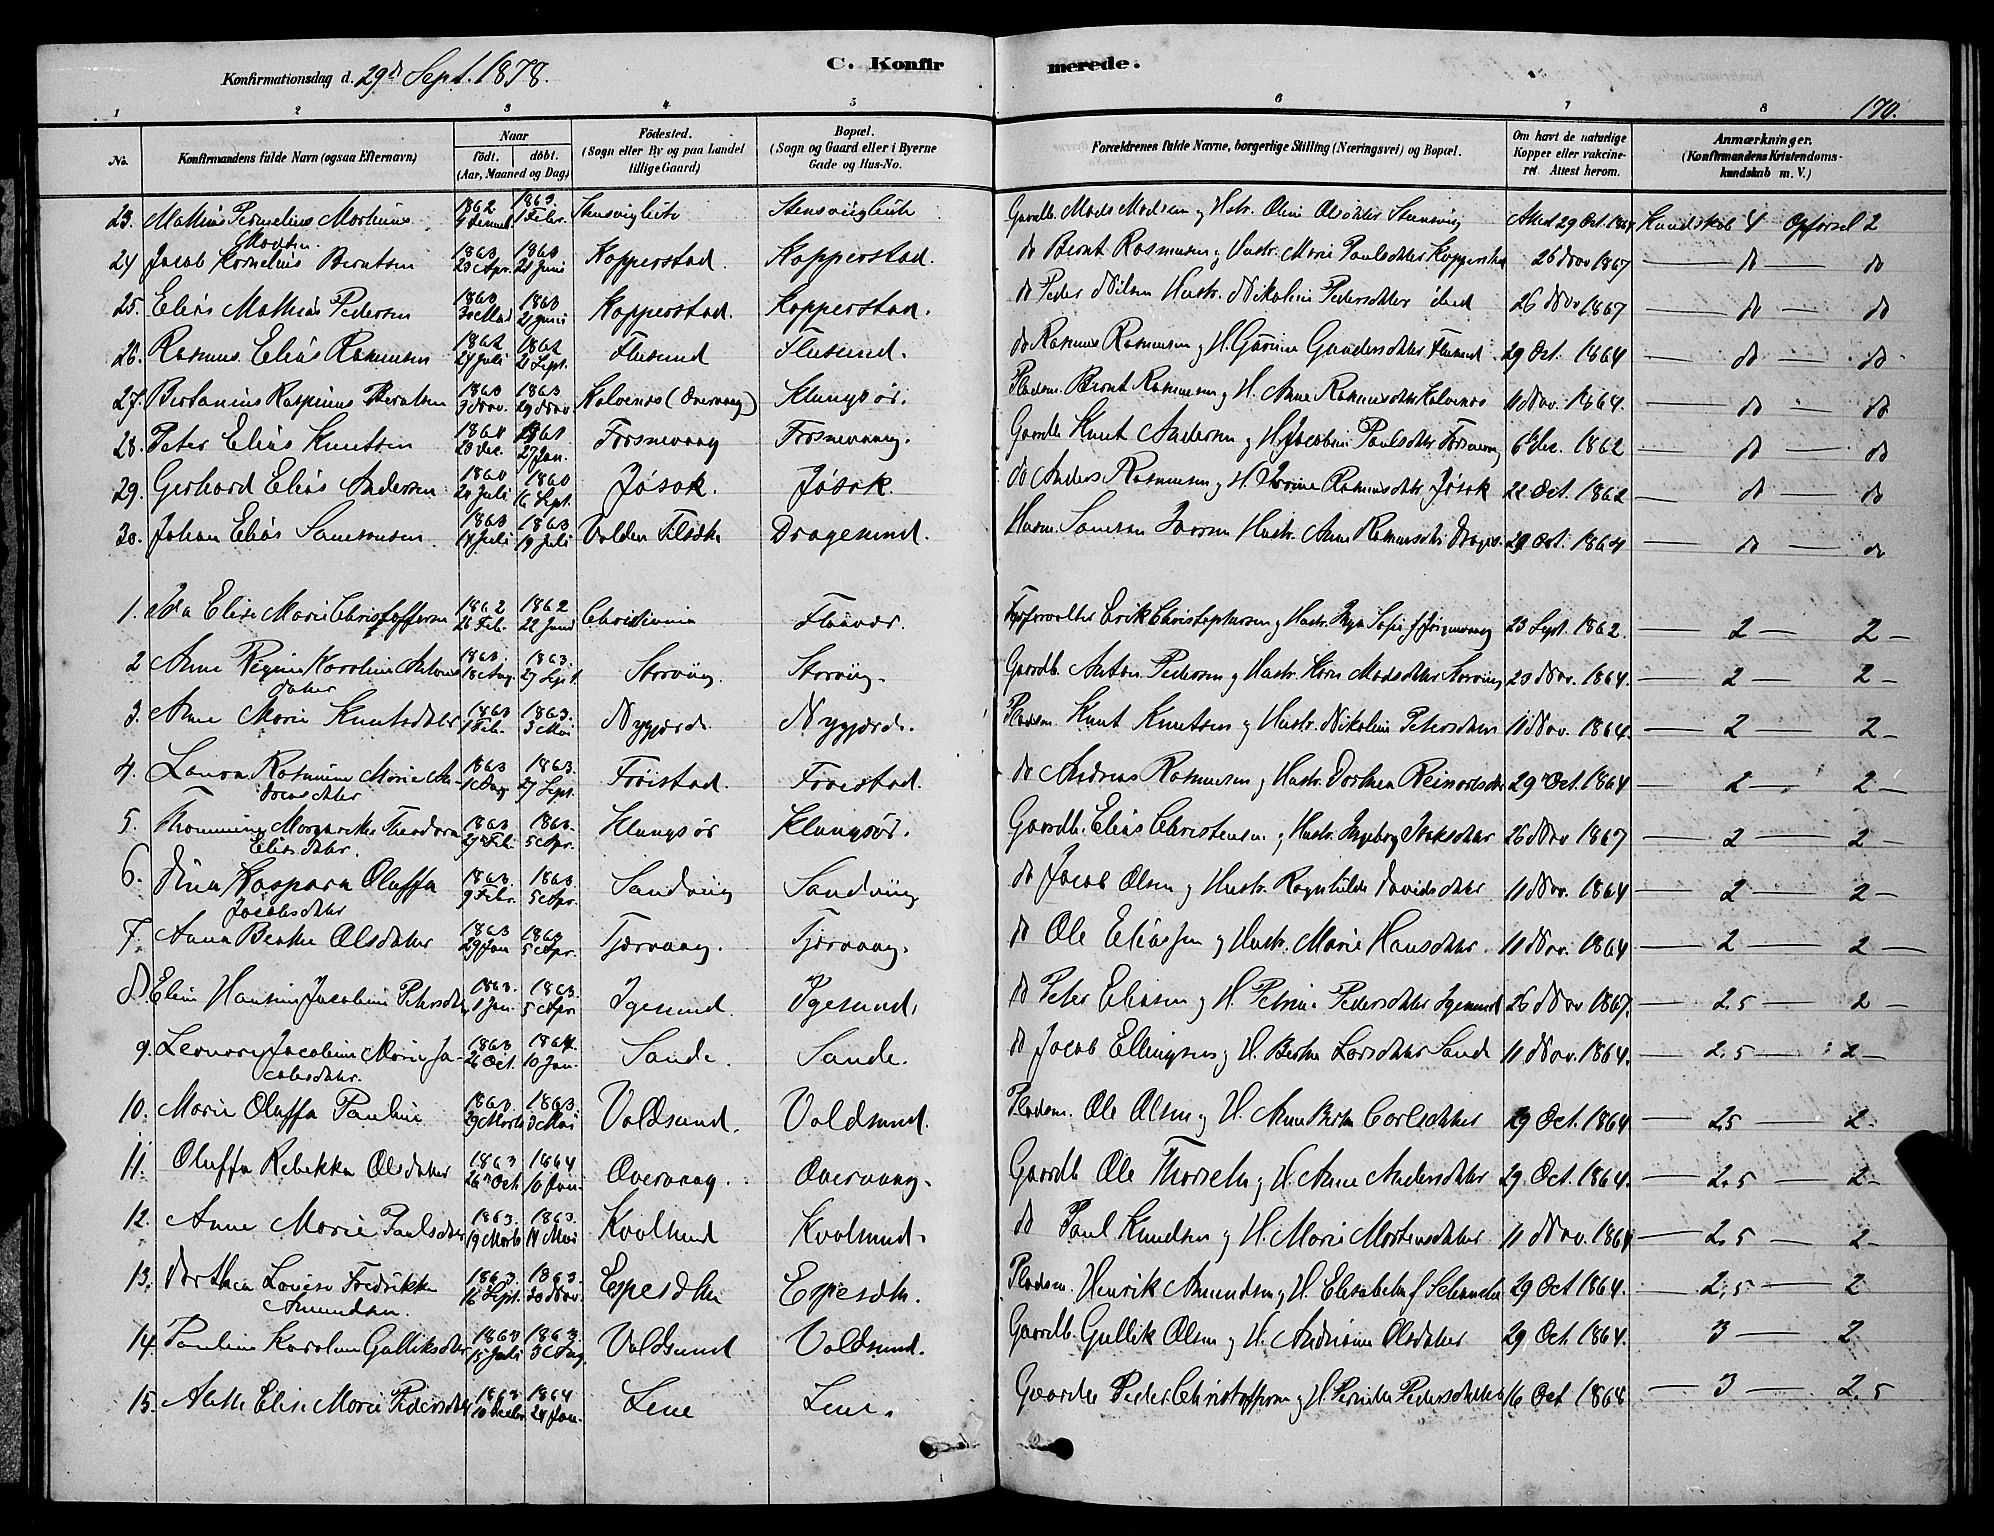 Konfirmationsdag d. 29d Sept. 1878.
C. Konfirmerede.
170.
1 2 3 4 5 6 7 8
No. Konfirmandens fulde Navn (ogsaa Efternavn) Naar født. døbt. (Aar, Maaned og Dag) Fødested. (Sogn eller By og paa Landet tillige Gaard) Bopæl. (Sogn og Gaard eller i Byerne Gade og Hus-No. Forældrenes fulde Navne, borgerlige Stilling (Næringsvei) og Bopæl. Om havt de naturlige Kopper eller vakcineret. Attest herom. Anmærkninger. (Konfirmandens Kristendomskundskab m. V.)
23. Mathias Martinus Madsen 1862 1863. 1 Febr. Gaardb. Mads Madsen og Hstr. Oline Olsdtter 29 Oct. Kundskab 4 Opførsel 2
24 Jacob Kornelius Berntsen 1863 23 Apr. 1863 21 Juni Kopperstad. Kopperstad. do Bernt Rasmusen og Hustr. Marie Paulsdtter 26 Nov 1867 do do
25. Elias Mathias Pedersen 1863 1863 21 Juni Kopperstad. Kopperstad. do Peder Nilsen Hustr. Nikoline Pedersdtter ibid 26 Nov 1867 do do
26. Rasmus Elias Rasmussen 1862 24 Juli 1862 21 Sept. Flusund Flusund. do Rasmus Rasmussen og H. Gundersdtter Flusund 29 Oct. 1864 do do
27. Berntsen 1863 1863 29 Nov Kalvenes (Overvaag) Klungsør. Pladsm. Bernt Rasmusen og H. Anne Rasmusdtter Kalvenes 11 Nov. 1864. do do
28. Peter Elias Knutsen 1860 1861 27 Jan. Frosnevaag Frosnevaag. Gaardb Knut Andersen og H. Jacobine Paulsdtter 6 Dec. 1862 do do
29. Gerhard Elias Andersen 1860 24 Juli 1860 16 Sept. Jøsok. Jøsok. do Anders Rasmusen og H. Rasmusdtter Jøsok 22 Oct. 1862 do do
30. Johan Elias Samsonsen 1863 14 Juli 1863 19 Juli Volden Dragesund. Husm. Samson Hustr. Anne Rasmusdtr 29 Oct. 1864 do do
1. Ida Elise Marie Christoffersen 1862 26 Feb. 1862 22 Juni Christiania Flaavær. Fyrforvalter Erik Christophersen og Hustr. Inga Sofie f. 23 Sept. 1862. 2 2
2 Anne Regine Karoline Antonsdatter 1863. 18 Aug. 1863. 27 Sept Storvaag. Storvaag. Gaardb. Anton Pedersen og Hustr. Karen Madsdtter 23 Nov. 1864. 2 2
3. Anne Marie Knutsdatter 1863 1 Feb. 1863. 3 Mai Nygjærde Nygjærde. Pladsm. Knut Knutsen og Hustr. Nikoline Petersdatter 11 Nov. 1864. 2 2
4. Laura Rasmine Marie Andreasdtter 1863 1863. 27 Sept. Frøistad. Frøistad. do Andreas Rasmussen og Hustr. Dorthea 29 Oct. 1864 2 2
5. Margarethe Theodora Eliasdtter. 1863 27 Feb. 1863. 5 Apr. Klungsør Klungsør. Gaardb. Elias Christensen og Hustr. Ingeborg 26 Nov 1867 2 2
6. Dina Kaspara Oluffa Jacobsdtter 1863. 9 Febr. 1863. 5 Apr. Sandvig Sandvig do Jacob Olsen og Hustr. Ragnhilde Davidsdatter 11 Nov. 1864 2 2
7. Anna Berthe Olsdatter 1863 29 Jan 1863 5 Apr. Tjærvaag. Tjærvaag. do Ole Eliassen og Hustr. Marie Hansdtter. 11 Nov. 1864 2 2
8 Eline Hansine Jacobine Petersdtr 1863. 1 Jan. 1863. 5 Apr Igesund. Igesund. do Peter Eliasen og H. Petrine Pedersdtter Igesund 26 Nov 1867. 2.5 2
9. Leonore Jacobine Marie Jacobsdtter. 1863 26 Oct. 1864. 10 Jan. Sande. Sande. do Jacob Ellingsen og H. Berthe Larsdatter Sande 11 Nov. 1864. 2.5 2
10. Marie Oluffa Pauline 1863 29 Marts 1863. 3 Mai Voldsund. Voldsund. Pladsm. Ole Olsen og H. Anne Berthe Carlsdatter 29 Oct. 1864 2.5 2
11. Oluffa Rebekka Olsdatter 1863 26 Oct. 1864 10 Jan. Overvaag. Overvaag. Gaardb Ole og H. Anne Andersdatter 29 Oct. 1864. 2.5 2
12. Anne Marie Paulsdatter 1863. 19 Marts 1863. 14 Mai Kvalsund Kvalsund. do Paul Knudsen og H. Marie Mortensdatter 11 Nov. 1864 2.5 2
13. Dorthea Lovise Fredrikke Amundsen. 1863. 16 Sept. 1863. Pladsm. Henrik Amundsen og H. Elisabeth f 29 Oct 1864. 2.5 2
14. Pauline Karoline Gulliksdtter 1863 15 Juli 1863. Voldsund Voldsund. Gaardb. Gullik Olsen og H. Andrianne Olsdatter 29 Oct. 1864. 3 2
15. Alette Elise Marie Pedersdtr 1863 1864 24 Jan. Lene Lene. Gaardbr Peder Christoffersen og H. Pernille Pedersdatter 16 Oct 1864 3 2.5